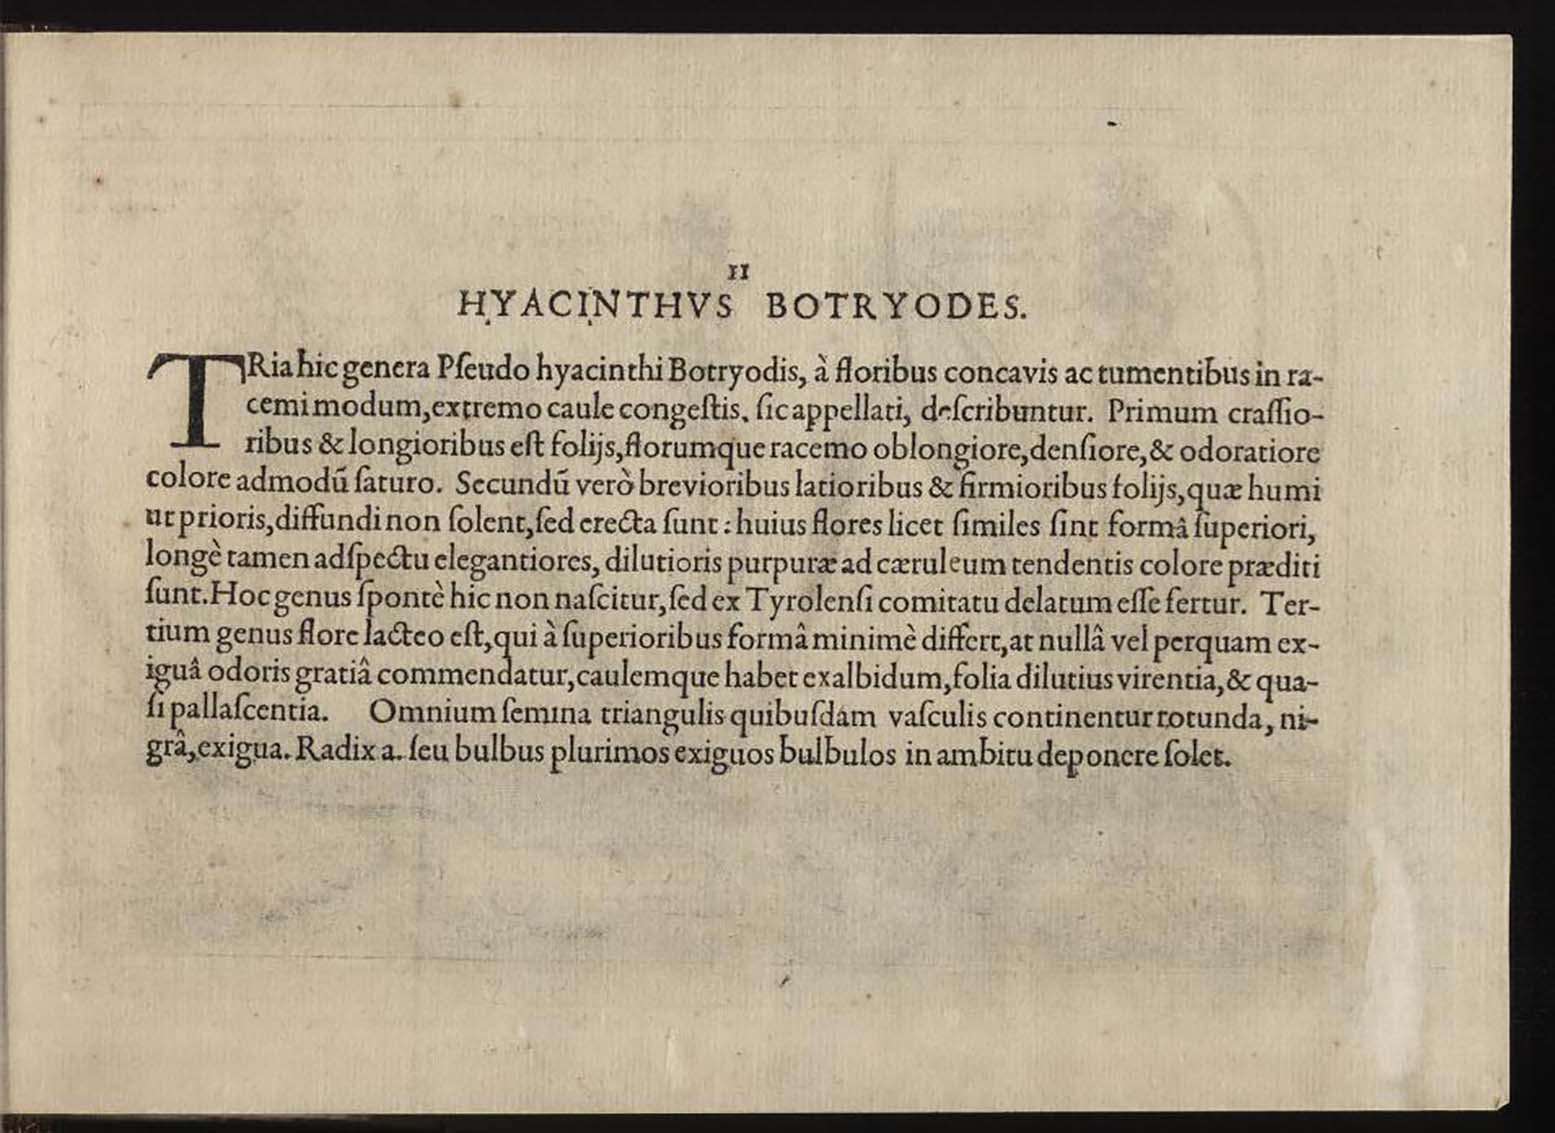 11
HYACINTHVS BOTRYODES.
TRia hic genera Pſeudo hyacinthi Botryodis, à floribus concavis ac tumentibus in ra-
cemi modum, extremo caule congeſtis, ſic appellati, deſcribuntur. Primum craſſio-
ribus & longioribus eſt folijs, florumque racemo oblongiore, denſiore, & odoratiore
colore admodū ſaturo. Secundū verò brevioribus latioribus & firmioribus folijs, quæ humi
ut prioris, diffundi non ſolent, ſed erecta ſunt: huius flores licet ſimiles ſint formâ ſuperiori,
longè tamen adſpectu elegantiores, dilutioris purpuræ ad cæruleum tendentis colore præditi
ſunt. Hoc genus ſpontè hic non naſcitur, ſed ex Tyrolenſi comitatu delatum eſſe fertur. Ter-
tium genus flore lacteo eſt, qui à ſuperioribus formâ minimè differt, at nullâ vel perquam ex-
iguâ odoris gratiâ commendatur, caulemque habet exalbidum, folia dilutius virentia, & qua-
ſi pallaſcentia. Omnium ſemina triangulis quibuſdam vaſculis continentur rotunda, ni-
grâ, exigua. Radix a. ſeu bulbus plurimos exiguos bulbulos in ambitu deponere ſolet.